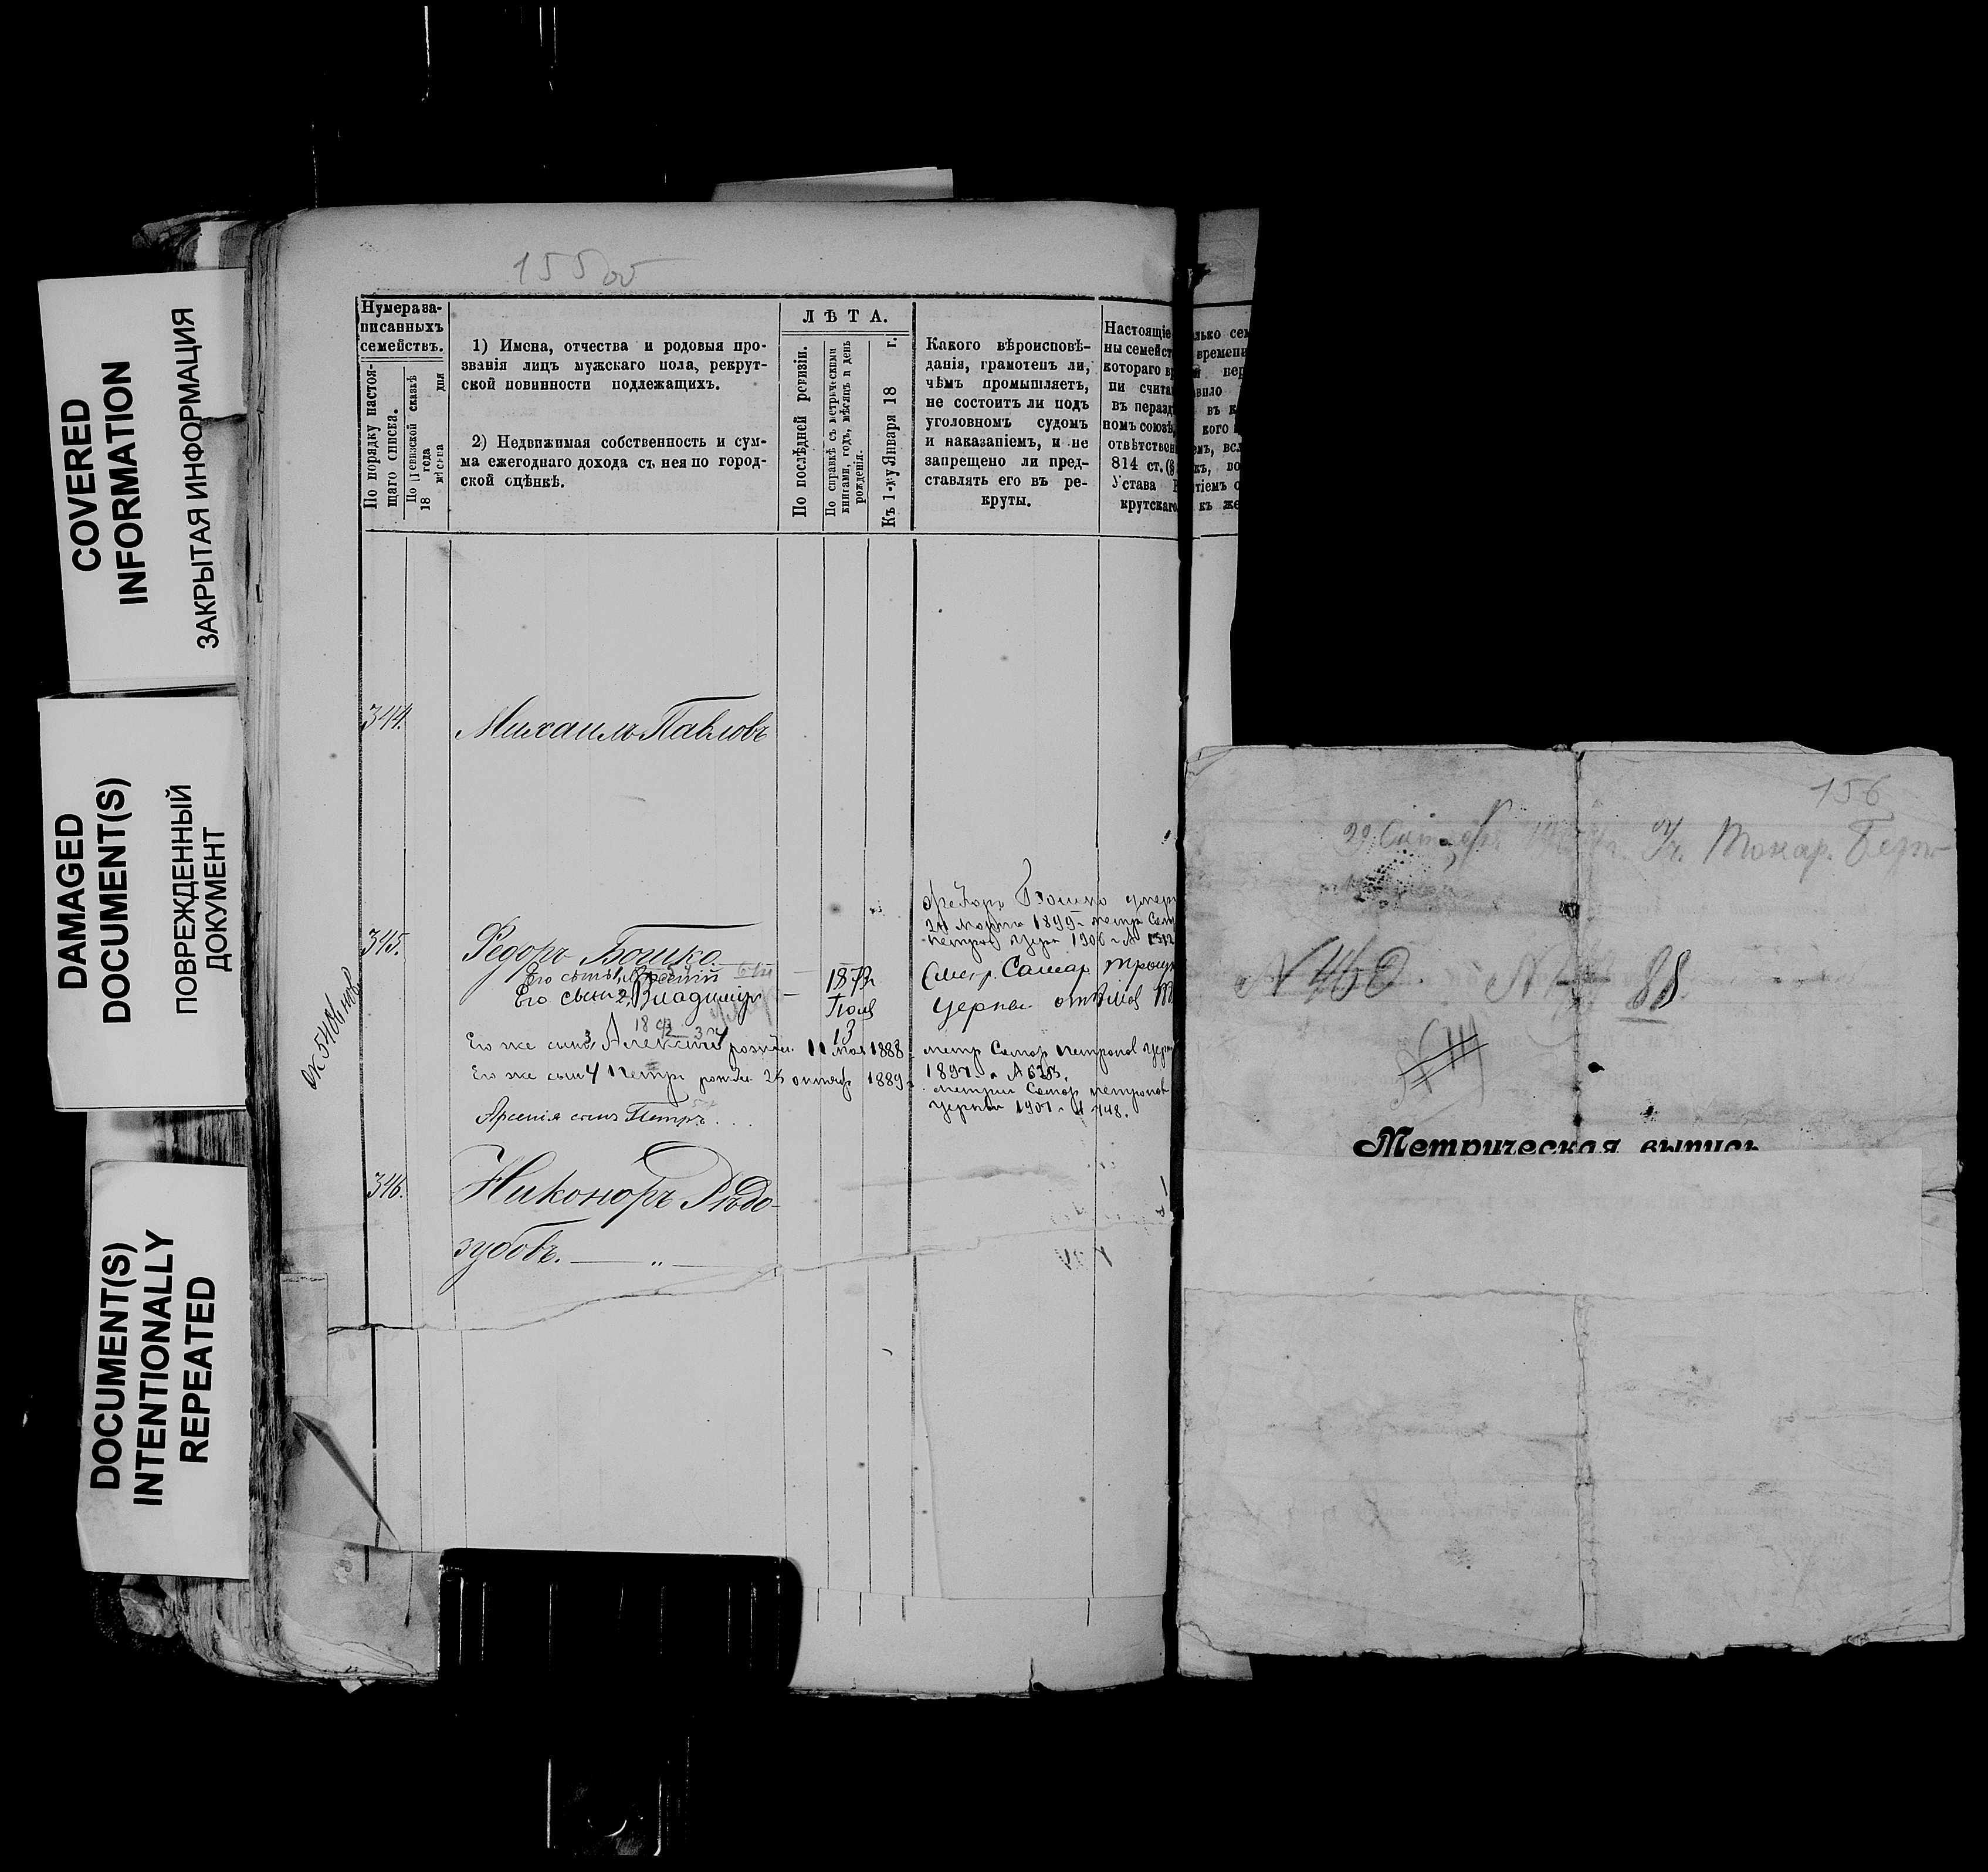 COVERED
INFORMATION
ЗАКРЫТАЯ ИНФОРМАЦИЯ
DAMAGED
DOCUMENT(S)
ПОВРЕЖДЕННЫЙ
ДОКУМЕНТ
DOCUMENT(S)
INTENTIONALLY
REPEATED
155об
Нумера за-
писанныхъ
семействъ.
По порядку настоя-
щаго списка.
По ревизской сказкѣ
18 года мѣсяца дня
1) Имена, отчества и родовыя про-
званія лицъ мужскаго пола, рекрут-
ской повинности подлежащихъ.
2) Недвижимая собственность и сум-
ма ежегоднаго дохода съ нея по город-
ской оцѣнкѣ.
ЛѢТА.
По послѣдней ревизіи.
По справкѣ съ метрическими
книгами, годъ, мѣсяцъ и день
рожденія.
Къ 1-му Января 18 г.
Какого вѣроисповѣ-
данія, грамотенъ ли,
чѣмъ промышляетъ,
не состоитъ ли подъ
уголовномъ судомъ
и наказаніемъ, и не
запрещено ли пред-
ставлять его въ ре-
круты.
Настоящіе
ны семейст
котораго в
ни счита
въ перазд
номъ союзѣ,
отвѣтствен
814 ст. (
Устава Р
крутскаго
лько сем
времени
пер
вило
въ к
кого
емъ, всл
къ, во
тіемъ о
къ же
344.
Михаилъ Павловъ
345.
Ѳедоръ Бошко
Его сынъ 1, Арсеній
Его сынъ 2, Владиміръ
1872
Іюля
13
Его же сынъ 3, Алексѣй рожден. 11 мая 1888
Его же сынъ 4 Петръ рожден. 25 октяб 1889
Арсенія сынъ Петръ
Ѳедоръ Бошко умер
24 марта 1899 метр Сам
Петроп церк 1906 г № 1512
Смотр. Самар Троиц
церкви
метр Самар Петропов церк
1897 г. №
метрик Самар Петропов
церкви 1901 г № 748.
346.
Никоноръ Рѣдо-
зубовъ. — „ —
156
29
N 460. N 88
Метрическая выпись